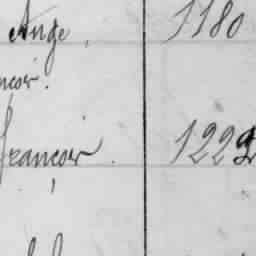 Ange, 1180
ncois.
françois. 1222